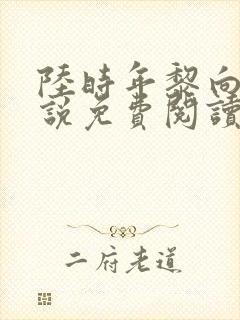 陸時年黎向
說免費閱讀
二府老道